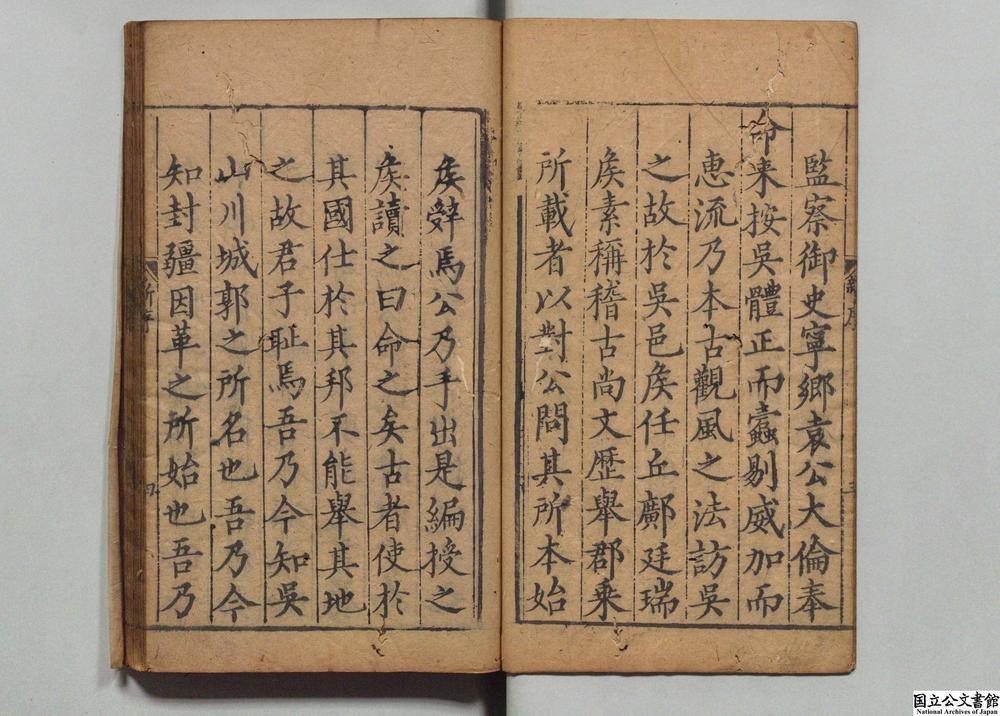 監察御史寧鄉袁公大倫奉
命来按吳體正而蠹剔威加而
惠流乃本古觀風之法訪吳
之故於吳邑矦任丘鄺廷瑞
矦素稱稽古尚文歷舉郡乘
所載者以對公問其所本始
矦辤焉公乃手出是編授之
矦讀之曰命之矣古者使於
其國仕於其邦不能舉其地
之故君子耻焉吾乃今知吳
山川城郭之所名也吾乃今
知封疆因革之所始也吾乃
三
四
国立公文書館
National Archives of Japan